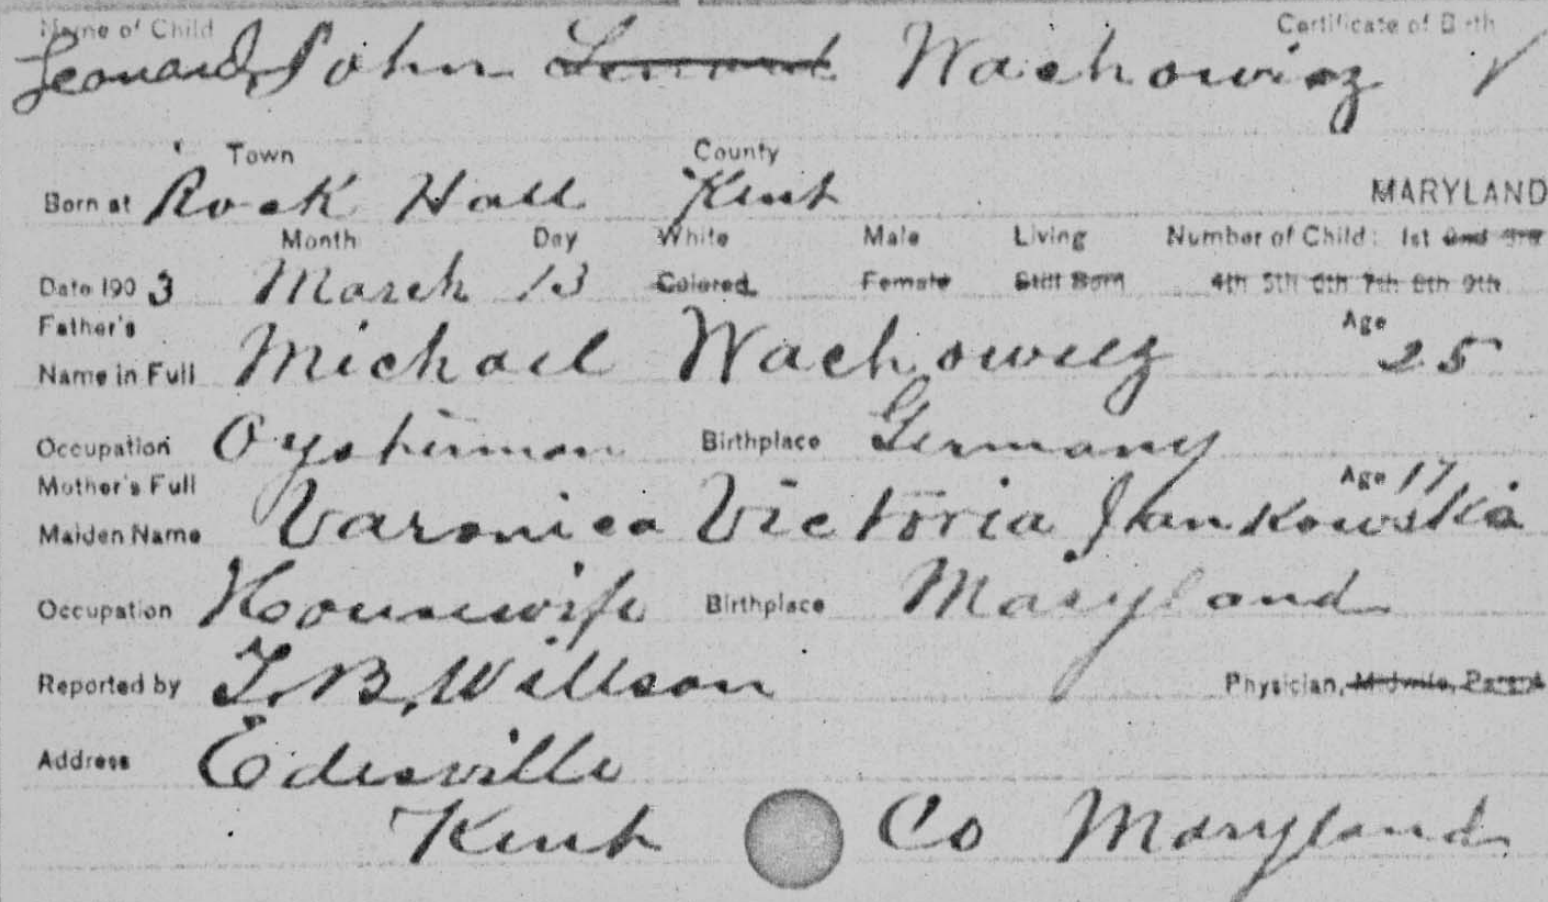 Name of Child Certificate of Birth
Leonard John Leonard Wachowicz
Town County
Born at Rock Hall Kent MARYLAND
Month Day White Male Living Number of Child: 1st 2nd 3rd
Date 1903 March 13 Colored Female Still Born 4th 5th 6th 7th 8th 9th
Father's Age
Name in Full Michael Wachowicz 25
Occupation Oysterman Birthplace Germany
Mother's Full Age 17
Maiden Name Varonica Victoria Jankowska
Occupation Housewife Birthplace Maryland
Reported by T. B. Willson Physician, Midwife, Parent
Address Edesville
Kent Co Maryland